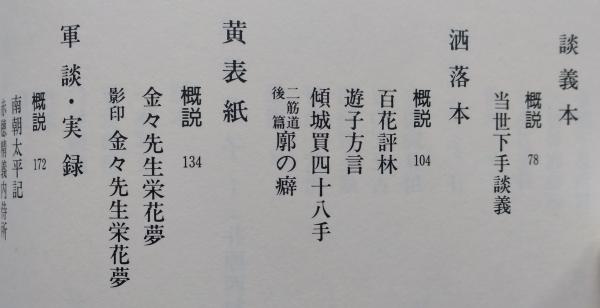 談義本
概説 78
当世下手談義
洒落本
概説 104
百花評林
遊子方言
傾城買四十八手
二筋道後篇 廓の癖
黄表紙
概説 134
金々先生栄花夢
影印 金々先生栄花夢
軍談・実録
概説 172
南朝太平記
赤穂精義内侍所